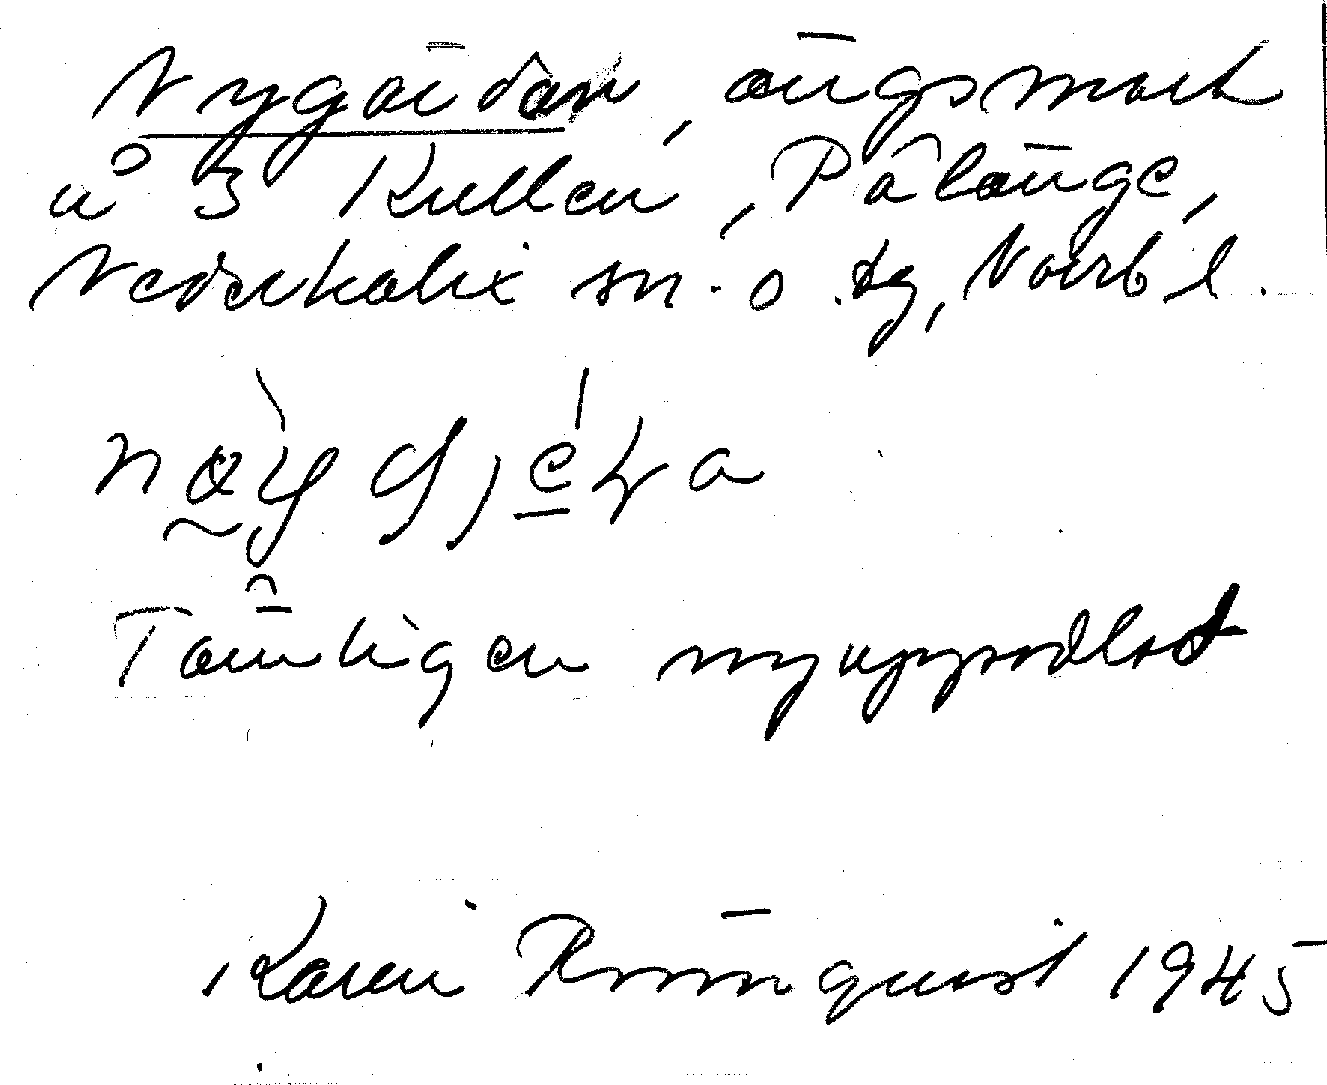 Nygärdan, ängsmark
nº 3 Kullen, Pålänge,
Nederkalix sn. o. tg, Norrb l.
Tämligen nyuppodlat
Karin Rönnquist 1945